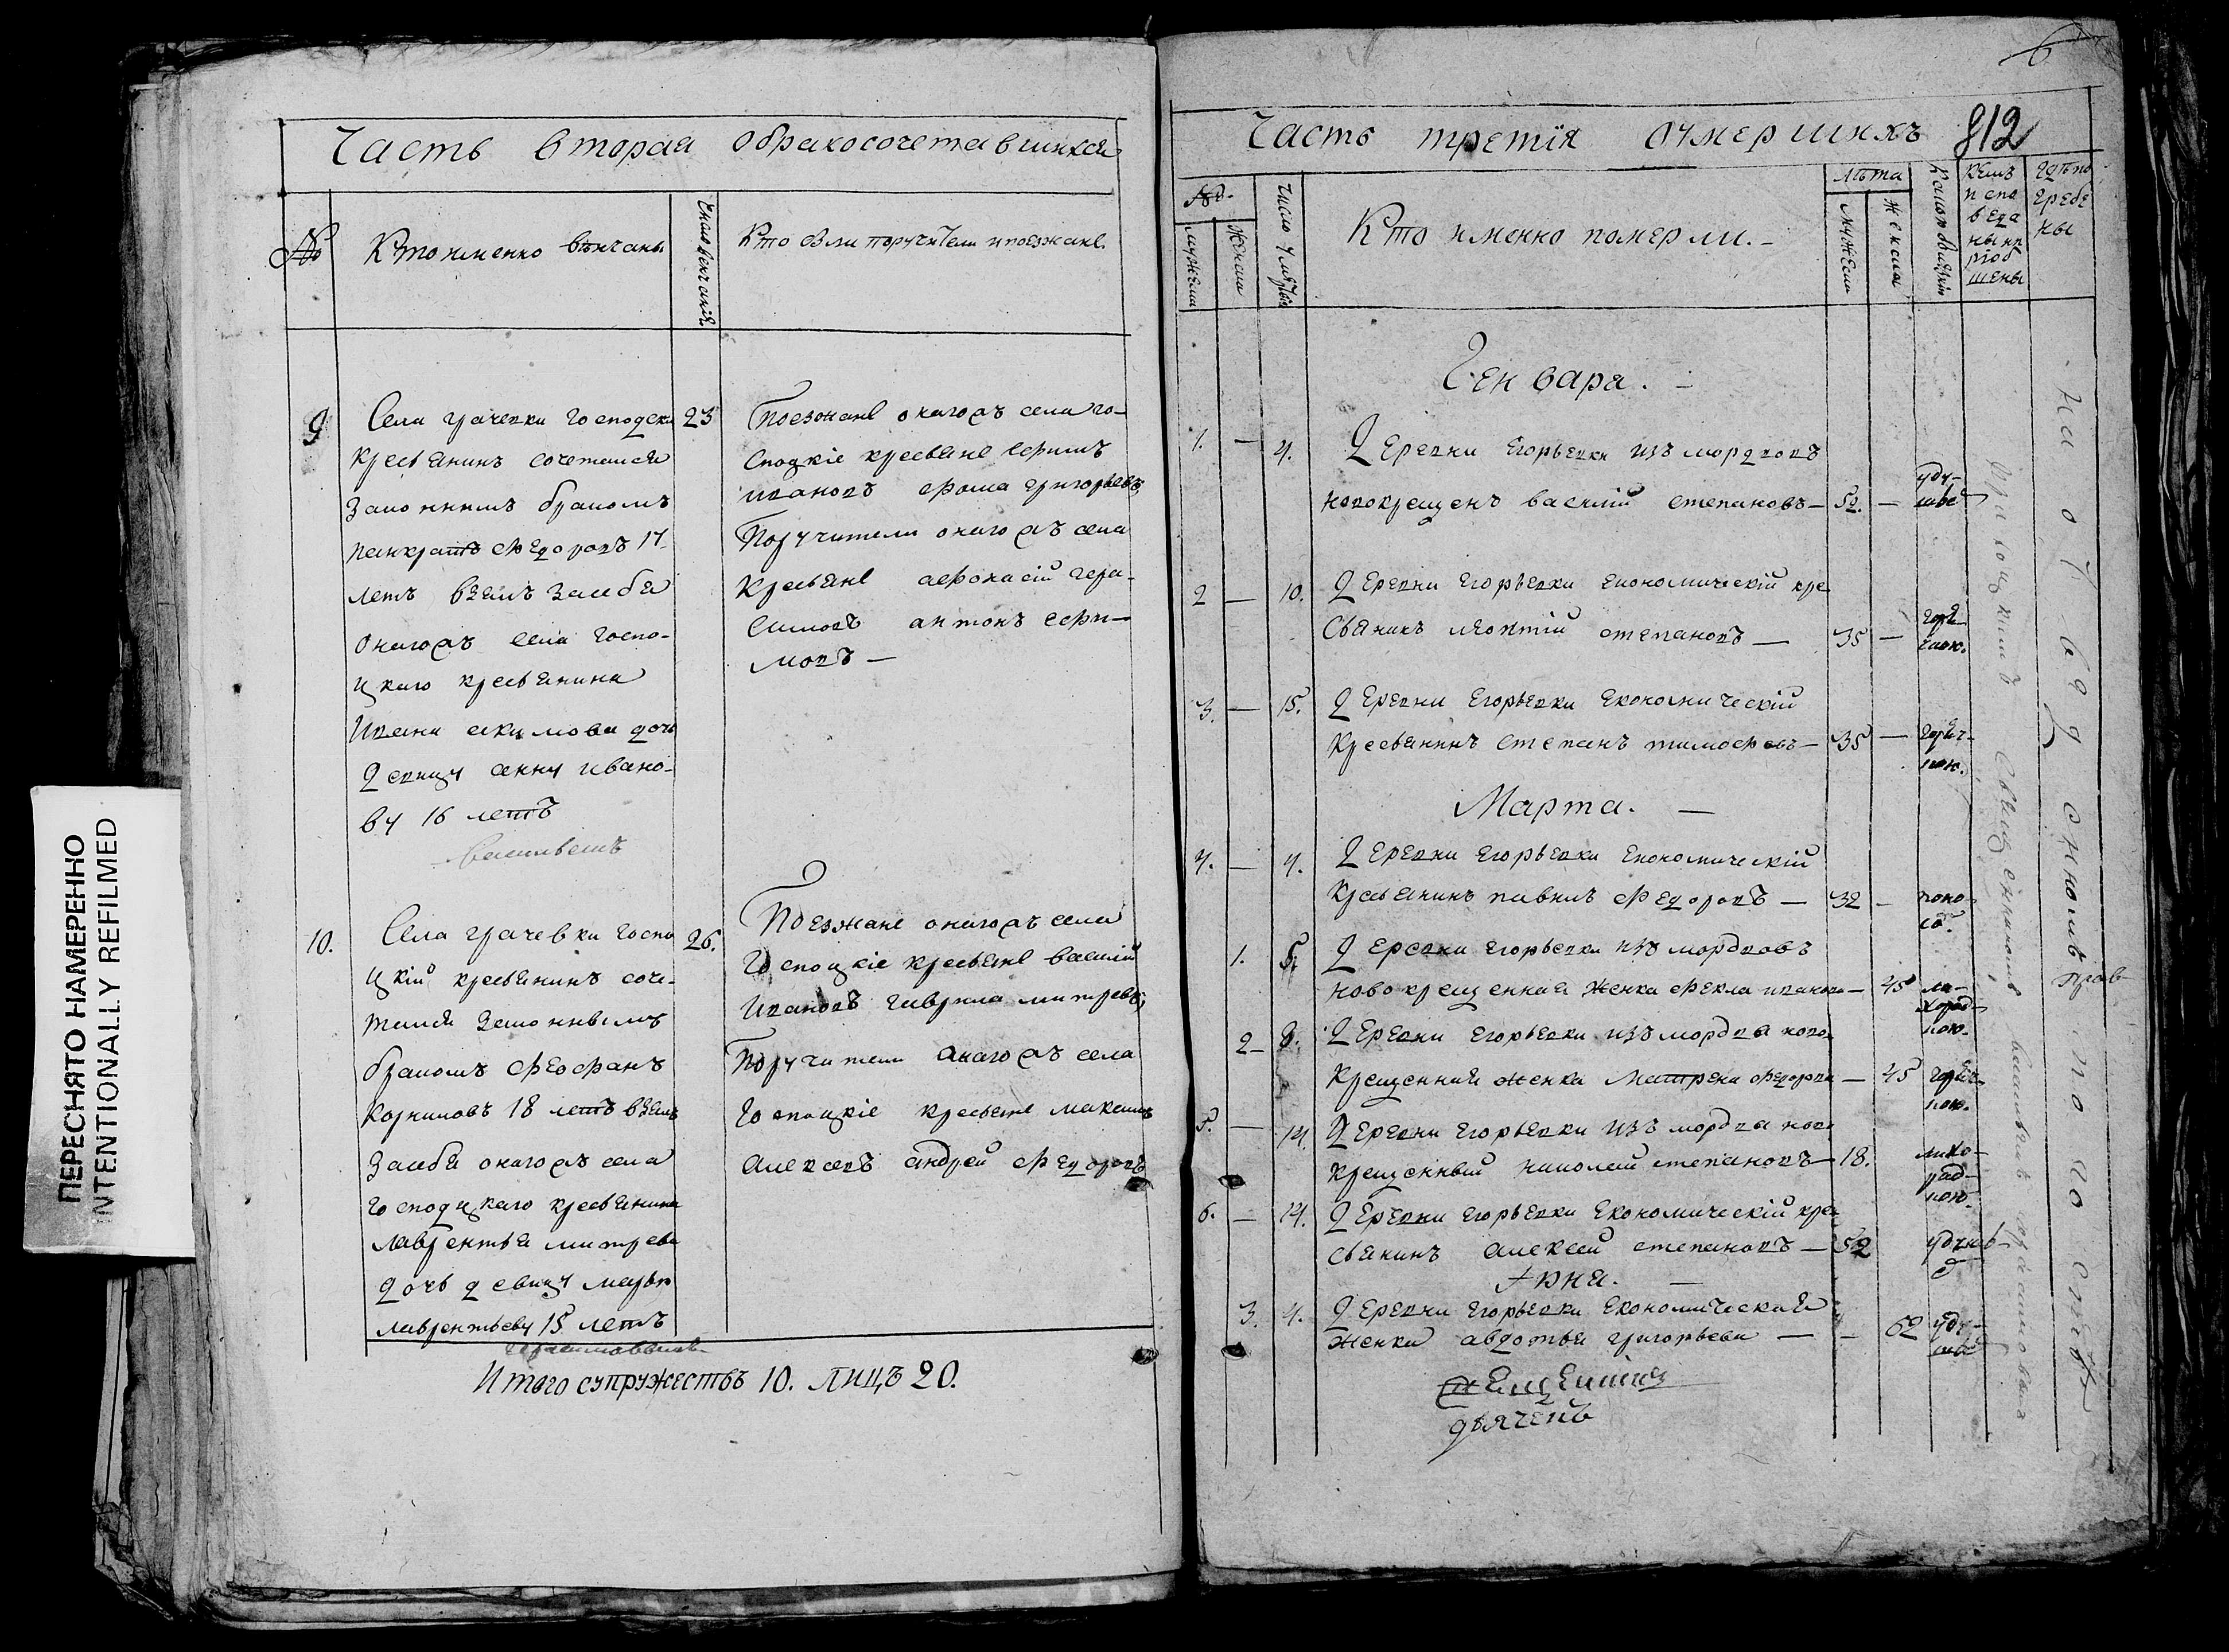 ПЕРЕСНЯТО НАМЕРЕННО
INTENTIONALLY REFILMED
Часть вторая обракосочетавшихся
№
Кто именно венчаны
Число венчания
Кто были поручители и поезжане.
9
Села грачевки Господски
кресьянинъ сочетался
Законнымъ бракомъ
панкратъ Федоровъ 17
летъ взялъ засебя
Оногожъ села Госпо-
цкаго кресьянина
Ивана акимова дочь
Девицу анну ивано-
ву 16 летъ
23
Поезжане оногожъ села го-
споцкіе кресьяне ефимъ
ивановъ фома григорьевъ,
Поручители оногожъ села
Кресьяне афонасій гера-
симовъ антонъ ефи-
мовъ —
10.
Села грачевки Госпо
цкій кресьянинъ соче-
тался законнымъ
бракомъ Феофанъ
Корниловъ 18 летъ взялъ
Засебя оногожъ села
Господцкаго кресьянина
лаврентья митрева
дочь девицу марью
лаврентьеву 15 летъ
26.
Поезжане оногожъ села
Госпоцкіе кресьяне василій
Ивановъ гаврила митревъ,
Поручители Аногожъ села
Госпоцкіе кресьяне максимъ
Алексевъ андрей Федоровъ
Итого супружествъ 10. лицъ 20.
6
Часть третія оумершихъ 812
№.
мужеска
женска
Число умертвія
Кто именно померли. -
лѣта
Мужеска
Женска
Какою болезнію
Кемъ
испо
веда
ны и п
риоб
щены
Гдѣ по
гребе
ны
Генваря. -
1. — 4. Деревни Егорьевки изъ мордвовъ
новокрещенъ василій степановъ — 52. — уду-
шьем
2 — 10. Деревни Егорьевки економическій кре
сьянинъ леонтій степановъ — 35 — горя-
чкою.
3. — 15. Деревни Егорьевки Економическій
Кресьянинъ степанъ тимофевъ — 35 — горяч-
кою.
Марта. —
4. — 4. Деревни Егорьевки Економическій
Кресьянинъ павилъ Федоровъ — 32 - поно-
со.
1. 5. Деревни Егорьевки изъ мордвовъ
новокрещенная Женка Фекла иванова — 45 ли-
хорад-
кою.
2- 8. Деревни Егорьевки изъ мордва ново
Крещенная женка Матрена Федорова — 45 горяч-
кою.
5. — 14. Деревни Егорьевки изъ мордва ново
Крещенный николай степановъ — 18. лихо-
рад-
кою.
6. — 14. Деревни Егорьевки Економическій кре
сьянинъ Алексей степановъ — 52 удушье
3. 4. Деревни Егорьевки Економическая
Женка авдотья григорьева — - 62 уду-
шье
На отведенномъ по
дьячекъ